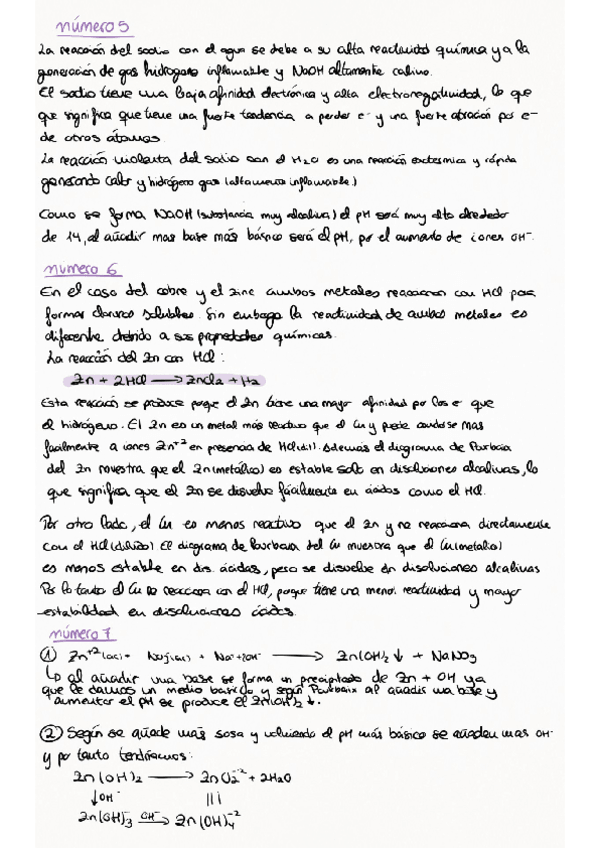 número 5
La reacción del sodio con el agua se debe a su alta reactividad química y a la
generación de gas hidrogeno inflamable y NaOH altamente calino.
El sodio tiene una baja afinidad electrónica y alta electronegatividad, lo que
que significa que tiene una fuerte tendencia a perder e- y una fuerte atracción por e-
de otros átomos
La reacción violenta del sodio con el H2O es una reacción exotermica y rápida
generando calor y hidrógeno gas (altamente inflamable)
Como se forma NaOH (substancia muy alcalina) el pH será muy alto alrededor
de 14, al añadir mas base más básico será el pH, por el aumento de iones OH-.
número 6
En el caso del cobre y el zinc ambos metales reaccionan con HCl para
formar cloruros solubles. Sin embargo la reactividad de ambos metales es
diferente debido a sus propiedades químicas.
La reacción del Zn con HCl:
Zn + 2HCl → ZnCl2 + H2
Esta reacción se produce porque el Zn tiene una mayor afinidad por los e- que
el hidrógeno. El Zn es un metal más reactivo que el Cu y puede oxidarse mas
facilmente a iones Zn+2 en presencia de HCl(dil). Además el diagrama de Pourbaix
del Zn muestra que el Zn(metálico) es estable solo en disoluciones alcalinas, lo
que significa que el Zn se disuelve fácilmente en ácidos como el HCl.
Por otro lado, el Cu es menos reactivo que el Zn y no reacciona directamente
con el HCl (diluido) El diagrama de Pourbaix del Cu muestra que el Cu(metalico)
es menos estable en dis. ácidas, pero se disuelve en disoluciones alcalinas
Por lo tanto el Cu no reacciona con el HCl, porque tiene una menor reactividad y mayor
estabilidad en disoluciones ácidas.
número 7
① Zn+2(ac) + Na+ + OH- → Zn(OH)2 ↓ + NaNO3
↳ al añadir una base se forma un precipitado de Zn + OH ya
que le damos un medio basico y según Pourbaix al añadir una base y
aumentar el pH se produce el Zn(OH)2 ↓.
② Según se añade más sosa y volviendo el pH más básico se añaden mas OH-
y por tanto tendríamos:
Zn(OH)2 → ZnO2-2 + 2H2O
↓OH-
Zn(OH)3- OH-→ Zn(OH)4-2